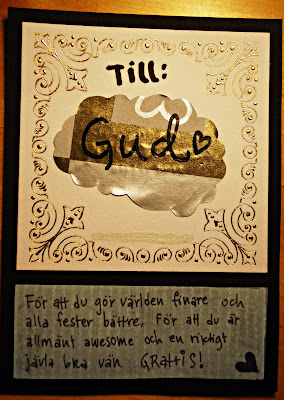 Till:
Gud
För att du gör världen finare och
alla fester bättre. För att du är
allmänt awesome och en riktigt
jävla bra vän GRATTIS!